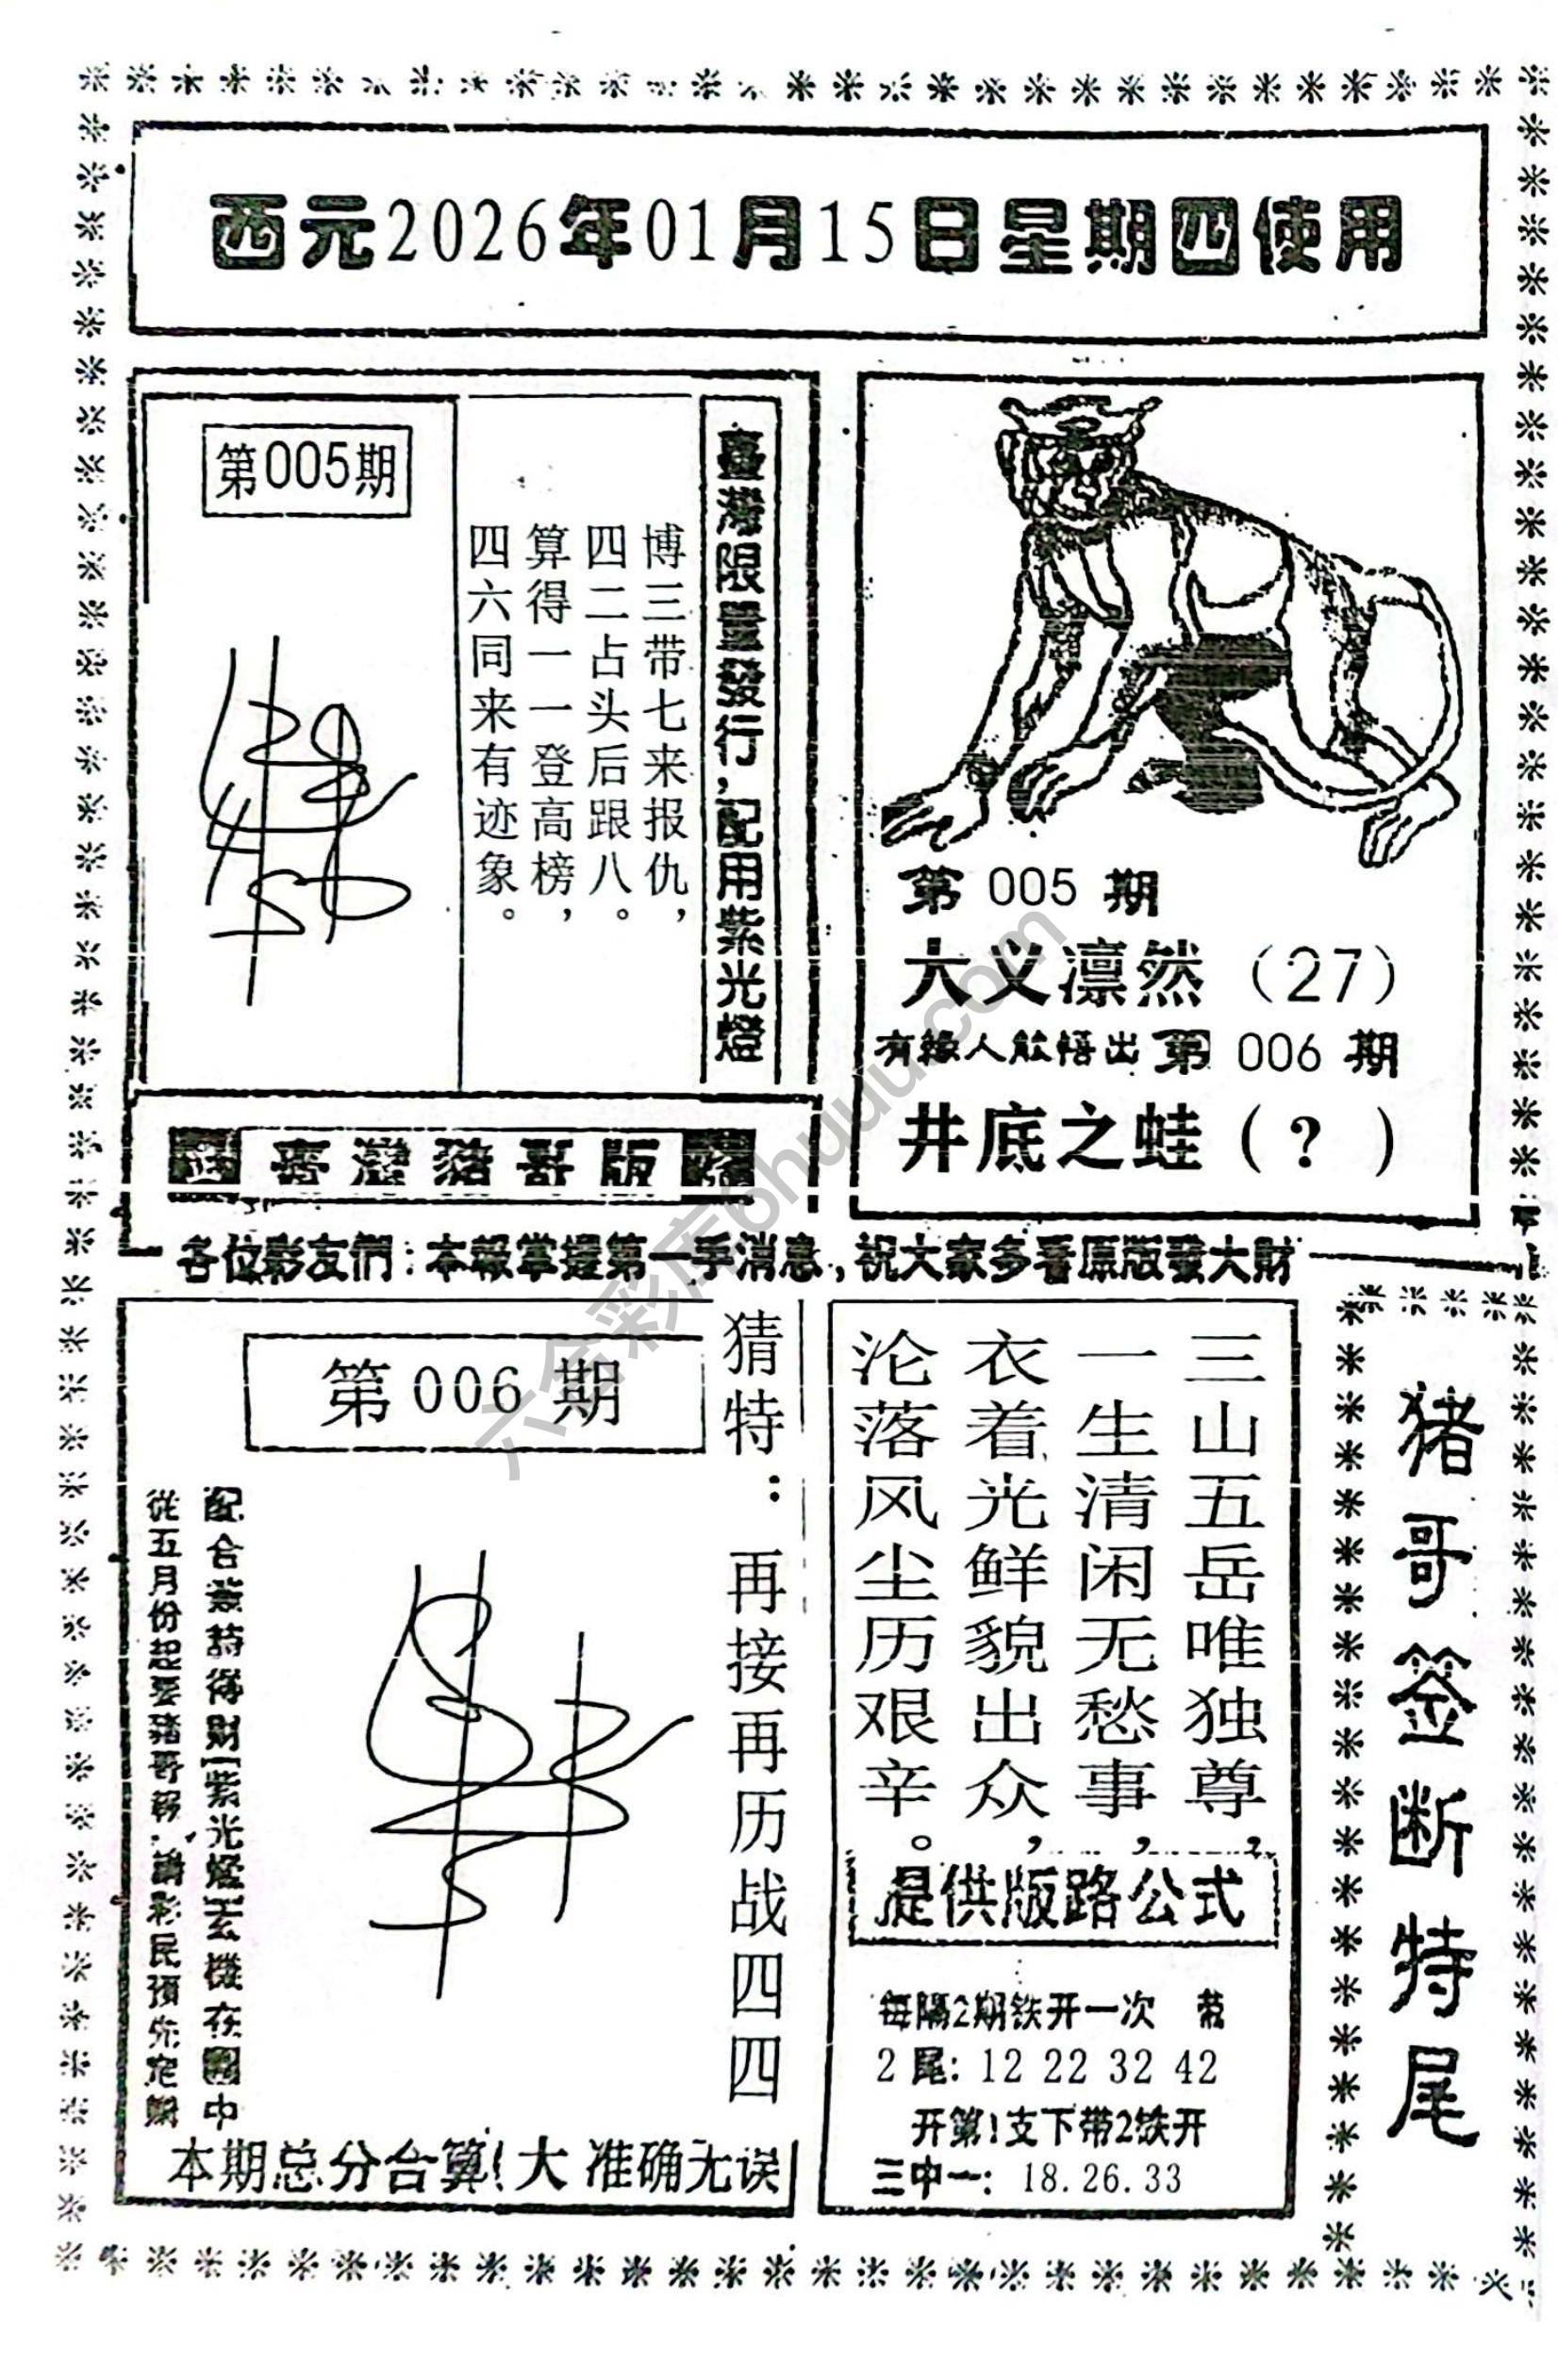 西元2026年01月15日星期四使用
第005期
博三带七来报仇，
四二占头后跟八。
算得一一登高榜，
四六同来有迹象。
臺灣限量發行，配用紫光燈
臺灣豬哥版
第 005 期
六义凛然（27）
有緣人能悟出第 006 期
井底之蛙（？）
各位彩友們：本報掌握第一手消息，祝大家多看原版發大財
第 006 期
猜特：再接再历战四四
配合簽詩得財【紫光燈】玄機在圖中
從五月份起要豬哥報，請彩民預先定購
本期总分合算！大 准确无误
三山五岳唯独尊，
一生清闲无愁事，
衣着光鲜貌出众，
沦落风尘历艰辛。
提供版路公式
每隔2期铁开一次
2尾：12 22 32 42
开第1支下带2铁开
三中一：18.26.33
猪哥签断特尾
六合彩库6huuu.com